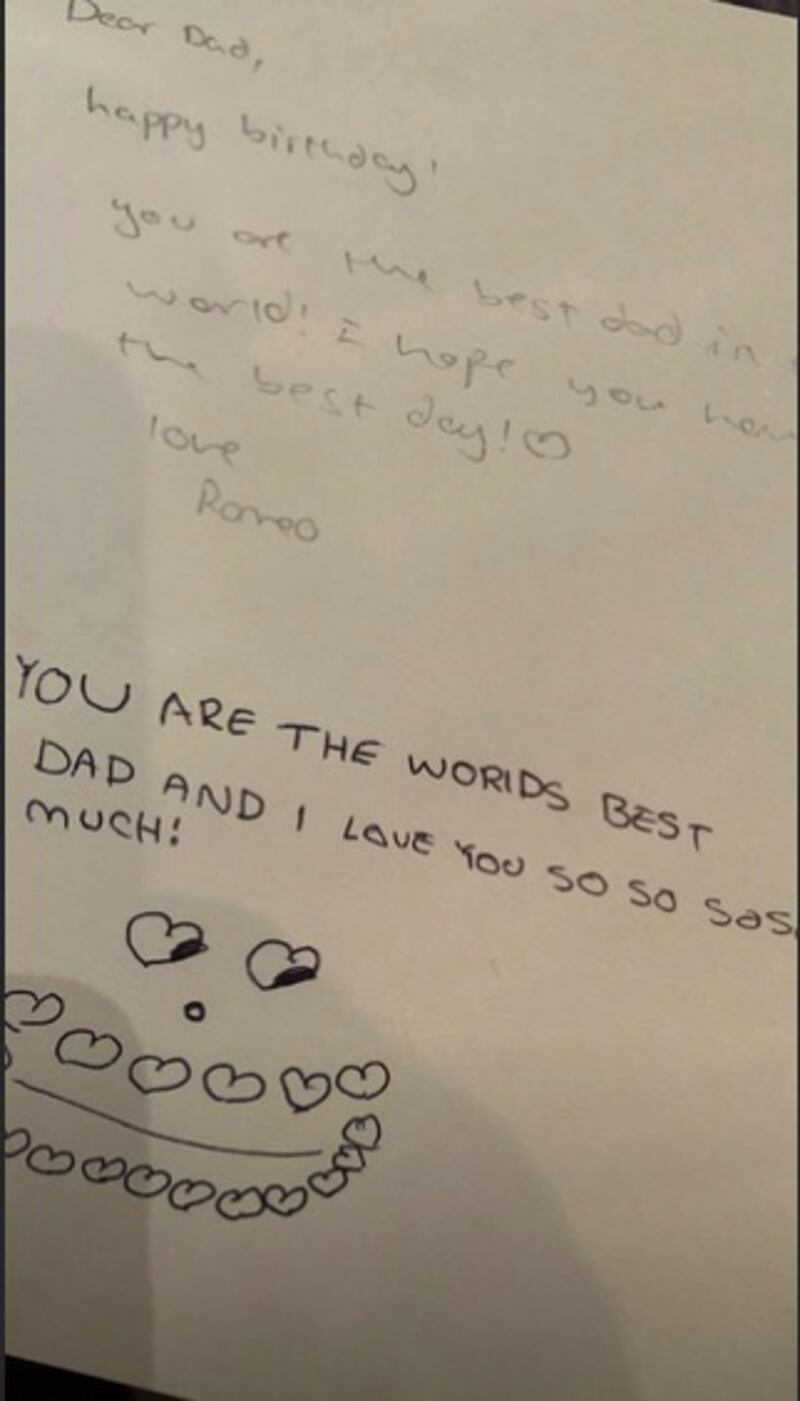 Dear Dad,
happy birthday!
you are the best dad in
world! I hope you
the best day!♡
love
Romeo
YOU ARE THE WORlDS BEST
DAD AND I LOVE YOU SO SO
MUCH!